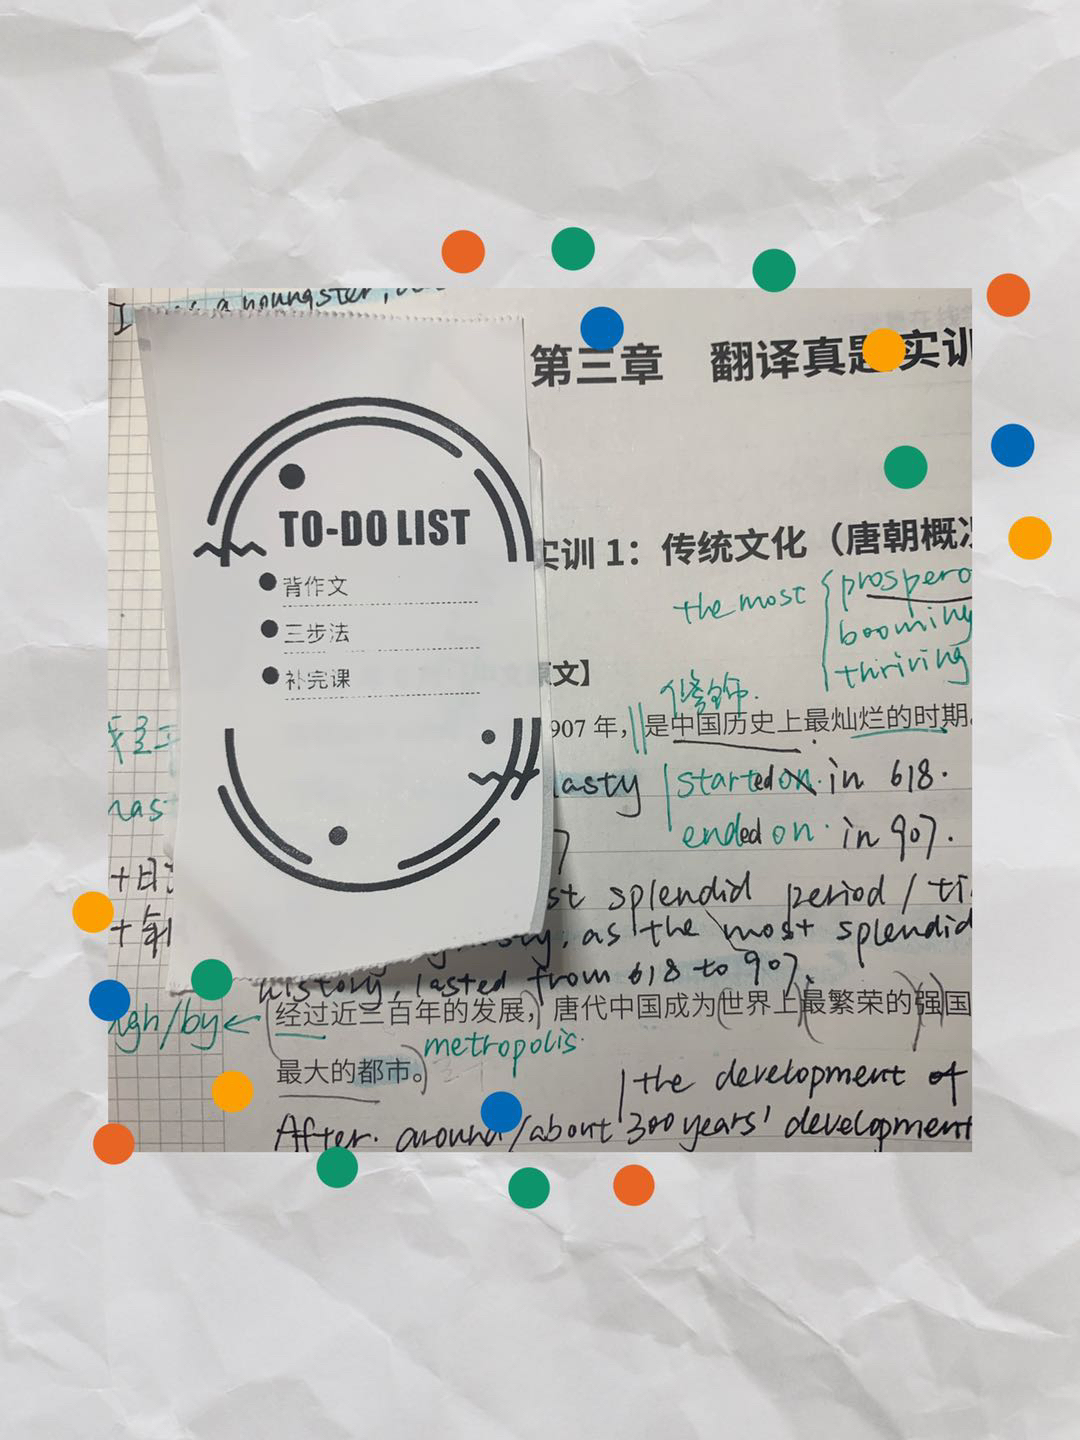 a youngster,
第三章 翻译真题实训
TO-DO LIST
背作文
三步法
补完课
实训 1：传统文化（唐朝概况
the most
prospero
booming
thriving
原文】
修饰.
907 年，是中国历史上最灿烂的时期。
nasty
started on. in 618.
ended on. in 907.
7
st splendid period / ti
sty, as the most splendid
history, lasted from 618 to 907.
经过近三百年的发展，唐代中国成为世界上最繁荣的强国
ugh/by
metropolis.
最大的都市。
the development of
After. around/about 300 years' development
nas
+日
+年